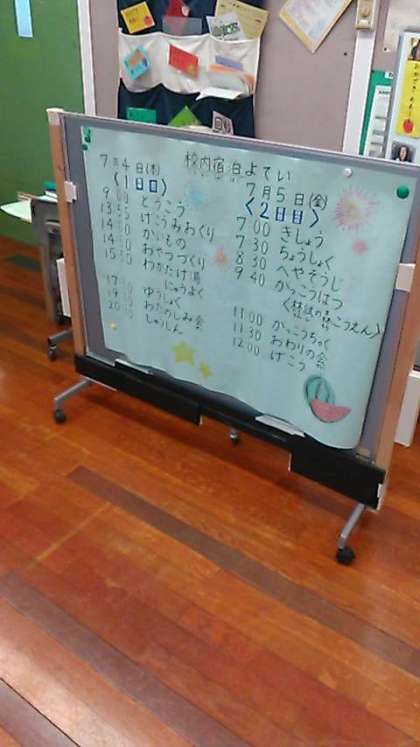 校内宿泊よてい
7月4日(木)
〈1日目〉
9:00 とうこう
13:55 げこうみおくり
14:00 かいもの
おやつづくり
15:30 わかたけ湯
にゅうよく
ゆうしょく
おたのしみ会
しゅうしん
7月5日(金)
〈2日目〉
7:00 きしょう
7:30 ちょうしょく
8:30 へやそうじ
9:40 がっこうはつ
こうえん〉
11:00 がっこうちゃく
11:30 おわりの会
12:00 げこう